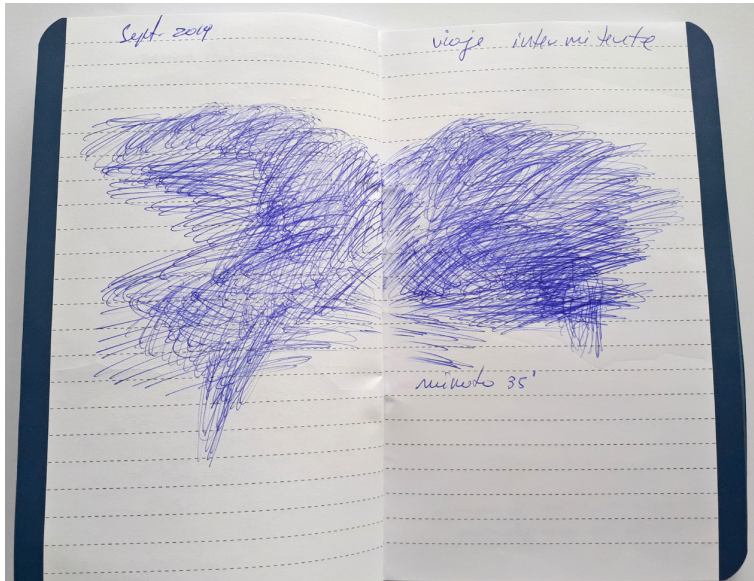 Sept. 2019
viaje intermitente
minuto 35'